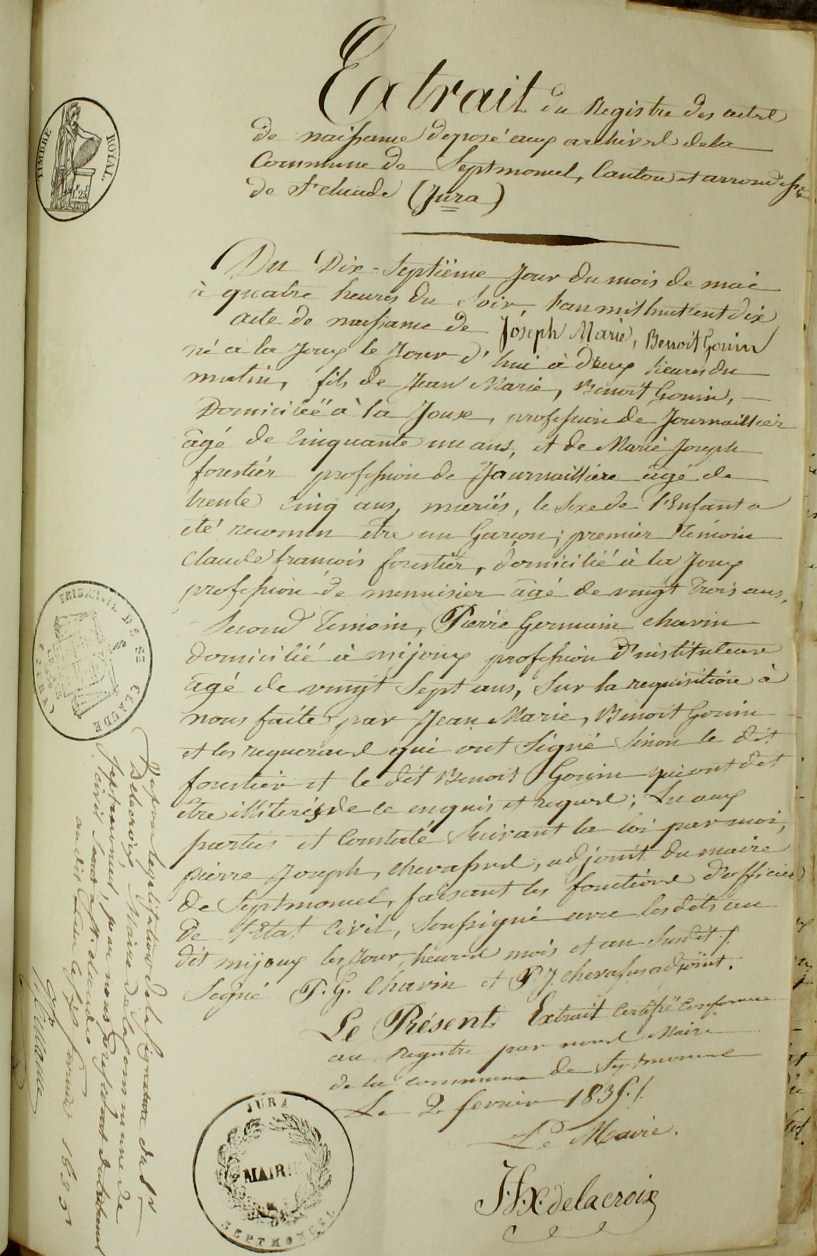 Extrait du Registre des actes
de naissance déposé aux archives de la
Commune de Septmoncel, Canton et arrondisst
de St claude (Jura)
TIMBRE ROYAL
Du Dix-Septième Jour du mois de mai
à quatre heures du Soir, l'an mil huit cent dix
acte de naissance de Joseph Marie, Benoit Gonin
né à la Joux le Jour d'hui à deux heures du
matin, fils de Jean Marie, Benoit Gonin,
Domiciliéë à la Joux, profession de Journaillier
âgé de Cinquante un ans, et de Marie Joseph
forestier profession de Journaillière âgé de
trente Cinq ans, mariés, le Sexe de l'Enfant a
été reconnu être un Garcon; premier Témoin
Claude francois forestier, domicilié à la Joux
profession de menuisier âgé de vingt trois ans,
Second Temoin, Pierre Germain chavin
domicilié à mijoux profession d'instituteur
âgé de vingt Sept ans, Sur la requisition à
nous faite par Jean Marie, Benoit Gonin
et les requerans qui ont Signé Sinon le dit
forestier et le dit Benoit Gonin qui ont dit
être illiterés de ce enquis et requis; Lu aux
parties et Constaté Suivant la loi par moi,
pierre Joseph, chevassus, adjoint du maire
de Septmoncel, faisant les fonctions d'officier
de l'Etat Civil, Soussigné avec les dits au
dit mijoux les Jour, heure mois et an Susdits.
Signé P. G. Chavin et P J chevassus adjoint.
Le Présent Extrait Certifié Conforme
au Registre par nous Maire
de la commune de Septmoncel
Le 2 fevrier 1835.
Le Maire.
J. Fx. delacroix
TRIBUNAL DE St CLAUDE
Vu pour légalisation de la Signature du Sr
Delacroix, Maire de la commune de
Septmoncel, par nous président du tribunal
civil Séant à St claude
JURA
MAIRIE
SEPTMONCEL